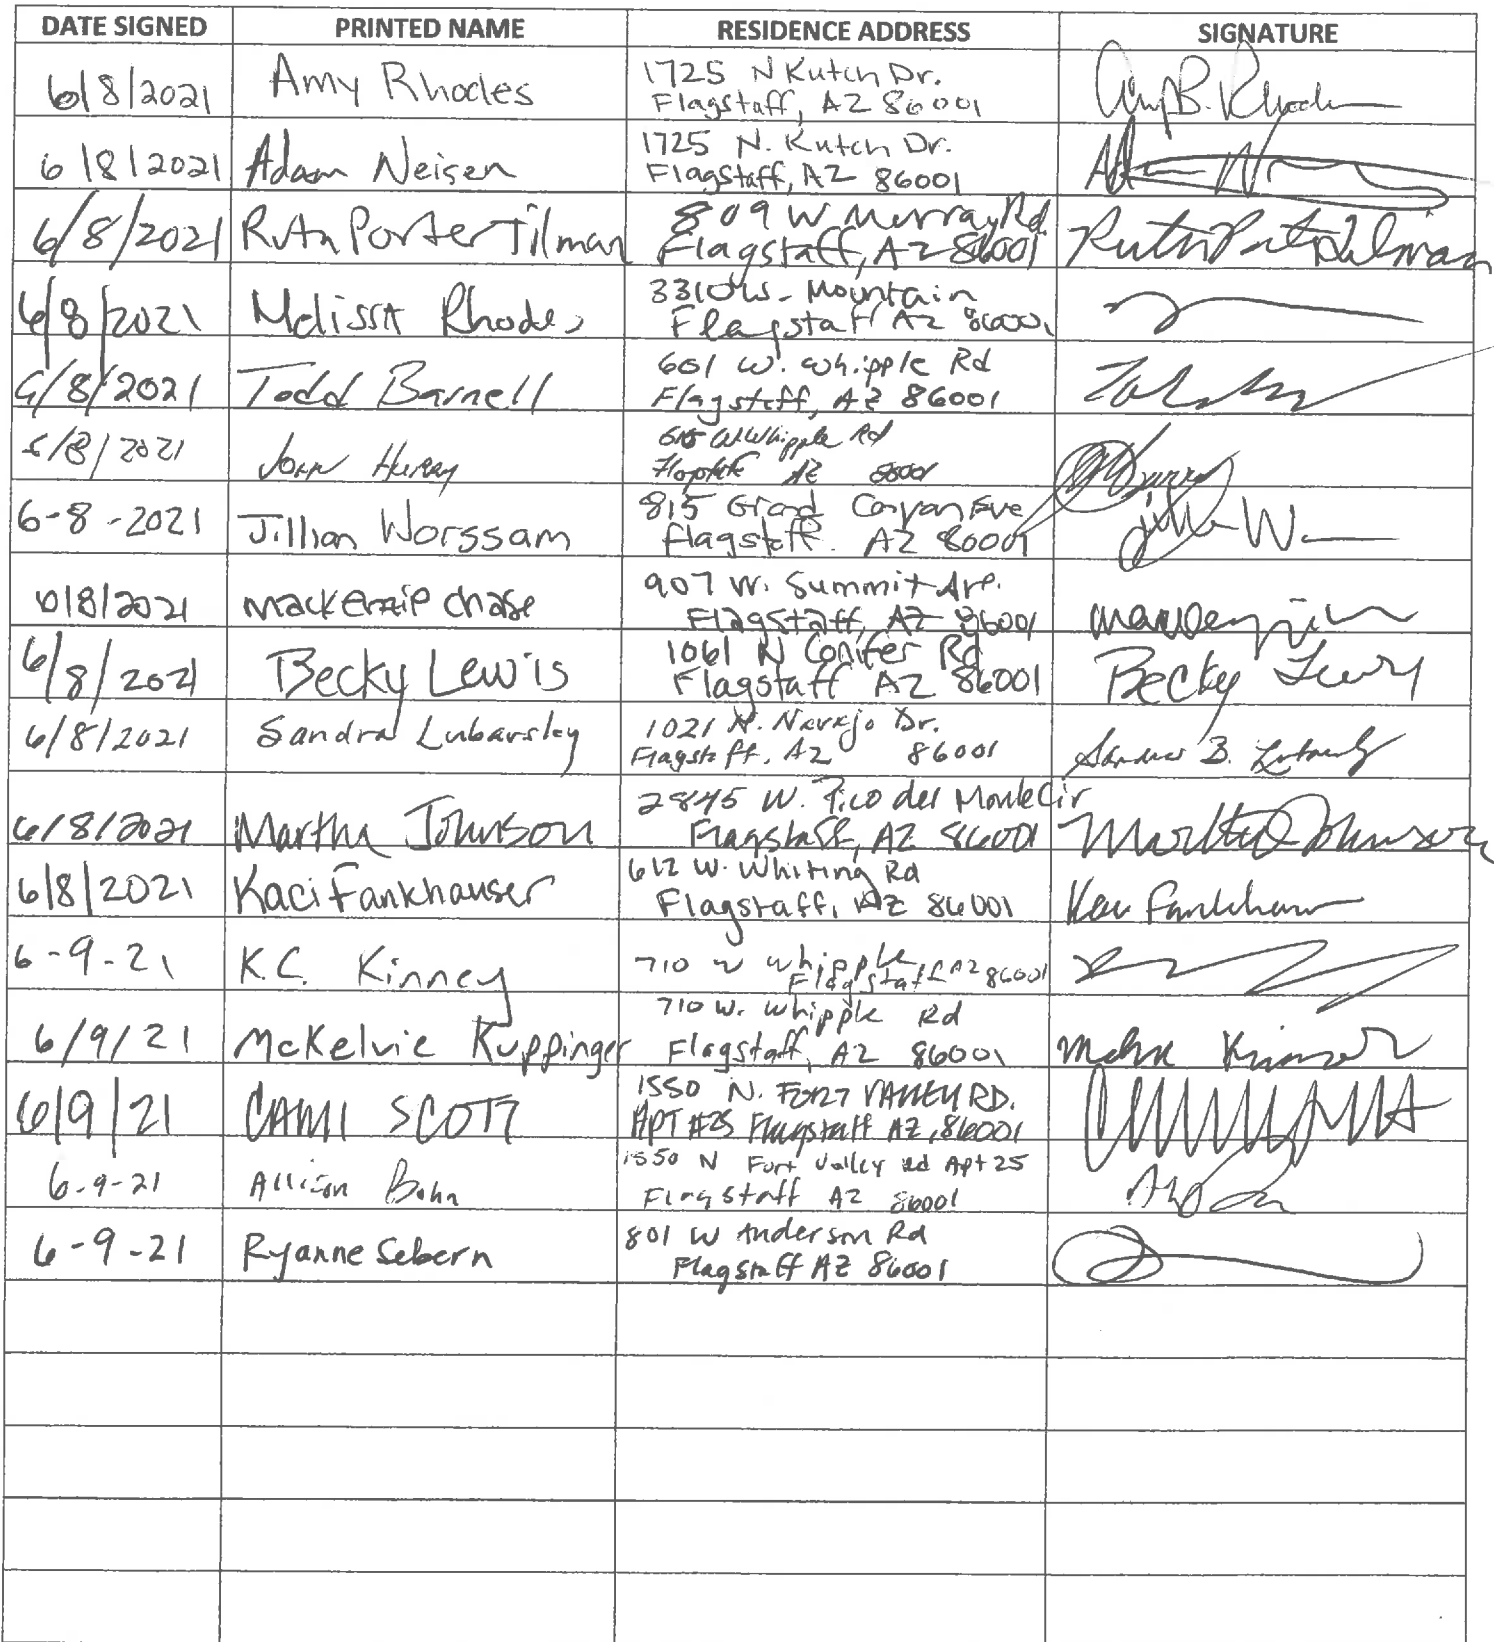 DATE SIGNED PRINTED NAME RESIDENCE ADDRESS SIGNATURE
6/8/2021 Amy Rhodes 1725 N Kutch Dr. Amy B. Rhodes
Flagstaff, AZ 86001
6/8/2021 Adam Neisen 1725 N. Kutch Dr.
Flagstaff, AZ 86001
6/8/2021 Ruth Porter Tilman 809 W Murray Rd Ruth Porter Tilman
Flagstaff, AZ 86001
6/8/2021 Melissa Rhodes 3310 W. Mountain
Flagstaff AZ 86001
6/8/2021 Todd Barnell 601 W. Whipple Rd
Flagstaff, AZ 86001
6/8/2021 John W Whipple Rd
AZ
6-8-2021 Jillian Worssam 815 Grand Canyon Eve
Flagstaff. AZ 86001
6/8/2021 Mackenzie Chase 907 W. Summit Ave.
Flagstaff, AZ 86001
6/8/2021 Becky Lewis 1061 N Conifer Rd Becky Lewis
Flagstaff AZ 86001
6/8/2021 Sandra Lubarsky 1021 N. Navajo Dr. Sandra B. Lubarsky
Flagstaff, AZ 86001
6/8/2021 Martha Johnson 2845 W. Pico del Monte Cir Martha Johnson
Flagstaff, AZ 86001
6/8/2021 Kaci Fankhauser 612 W. Whiting Rd Kaci Fankhauser
Flagstaff, AZ 86001
6-9-21 K.C. Kinney 710 W Whipple
Flagstaff AZ 86001
6/9/21 McKelvie Kuppinger 710 W. Whipple Rd
Flagstaff, AZ 86001
6/9/21 CAMI SCOTT 1550 N. FORT VALLEY RD.
APT #25 Flagstaff AZ, 86001
6-9-21 Allison Bohn 1550 N Fort Valley Rd Apt 25
Flagstaff AZ 86001
6-9-21 Ryanne Sebern 801 W Anderson Rd
Flagstaff AZ 86001